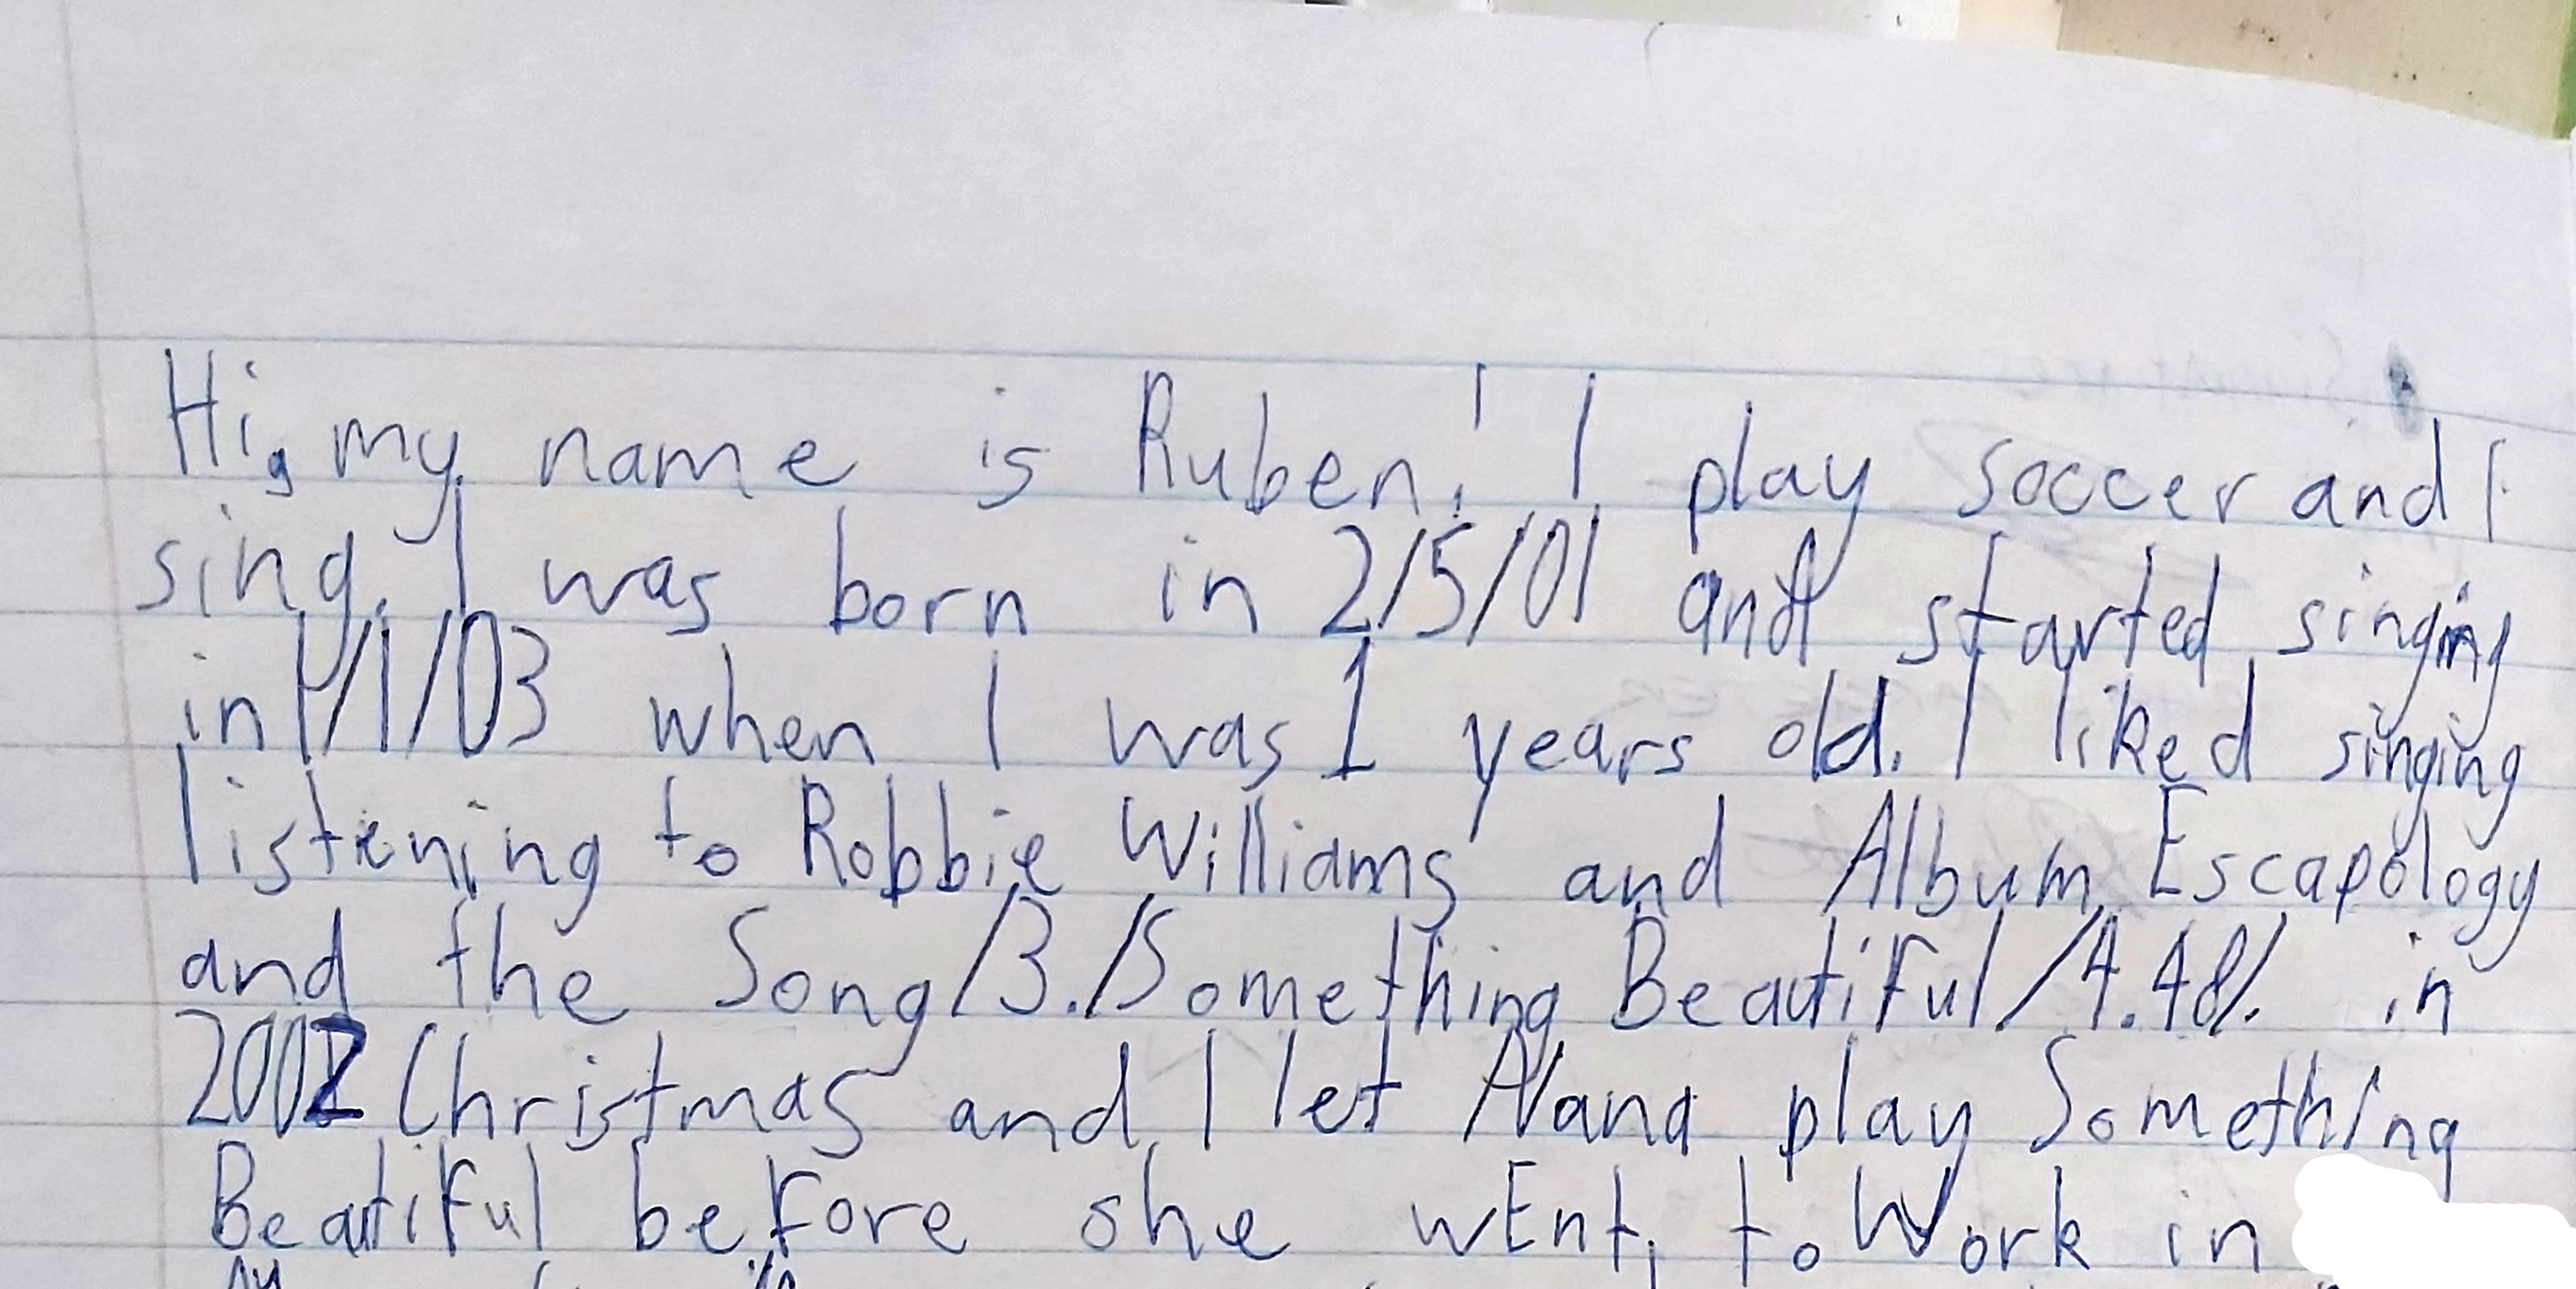 Hi, my name is Ruben! I play soccer and I
sing. I was born in 2/5/01 and started singing
in 1/1/03 when I was 1 years old. I liked singing
listening to Robbie Williams and Album Escapology
and the Song/3./Something Beautiful/4.48/. in
2002 Christmas and I let Nana play Something
Beautiful before she wEnt to Work in